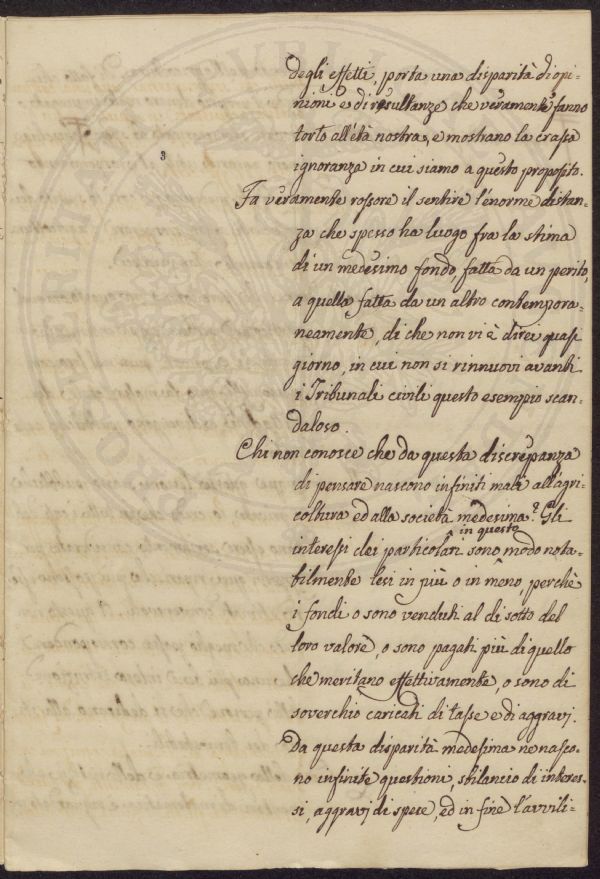 degli effetti, porta una disparità di opi-
nioni e di risultanze che veramente fanno
torto all'età nostra, e mostrano la crassa
3
ignoranza in cui siamo a questo proposito.
Fa veramente rossore il sentire l'enorme distan-
za che spesso ha luogo fra la stima
di un medesimo fondo, fatta da un perito,
a quella fatta da un altro contempora-
neamente, di che non vi è direi quasi
giorno, in cui non si rinnuovi avanti
i Tribunali civili questo esempio scan-
daloso.
Chi non conosce che da questa discrepanza
di pensare nascono infiniti mali all'agri-
coltura ed alla società medesima? Gli
in questo
interessi dei particolari sono modo nota-
bilmente lesi in più o in meno, perchè
i fondi o sono venduti al di sotto del
loro valore, o sono pagati più di quello
che meritano effettivamente, o sono di
soverchio caricati di tasse e di aggravj.
Da questa disparità medesima ne nasco-
no infinite questioni, sbilancio di interes-
si, aggravj di spese, ed in fine l'avvili-